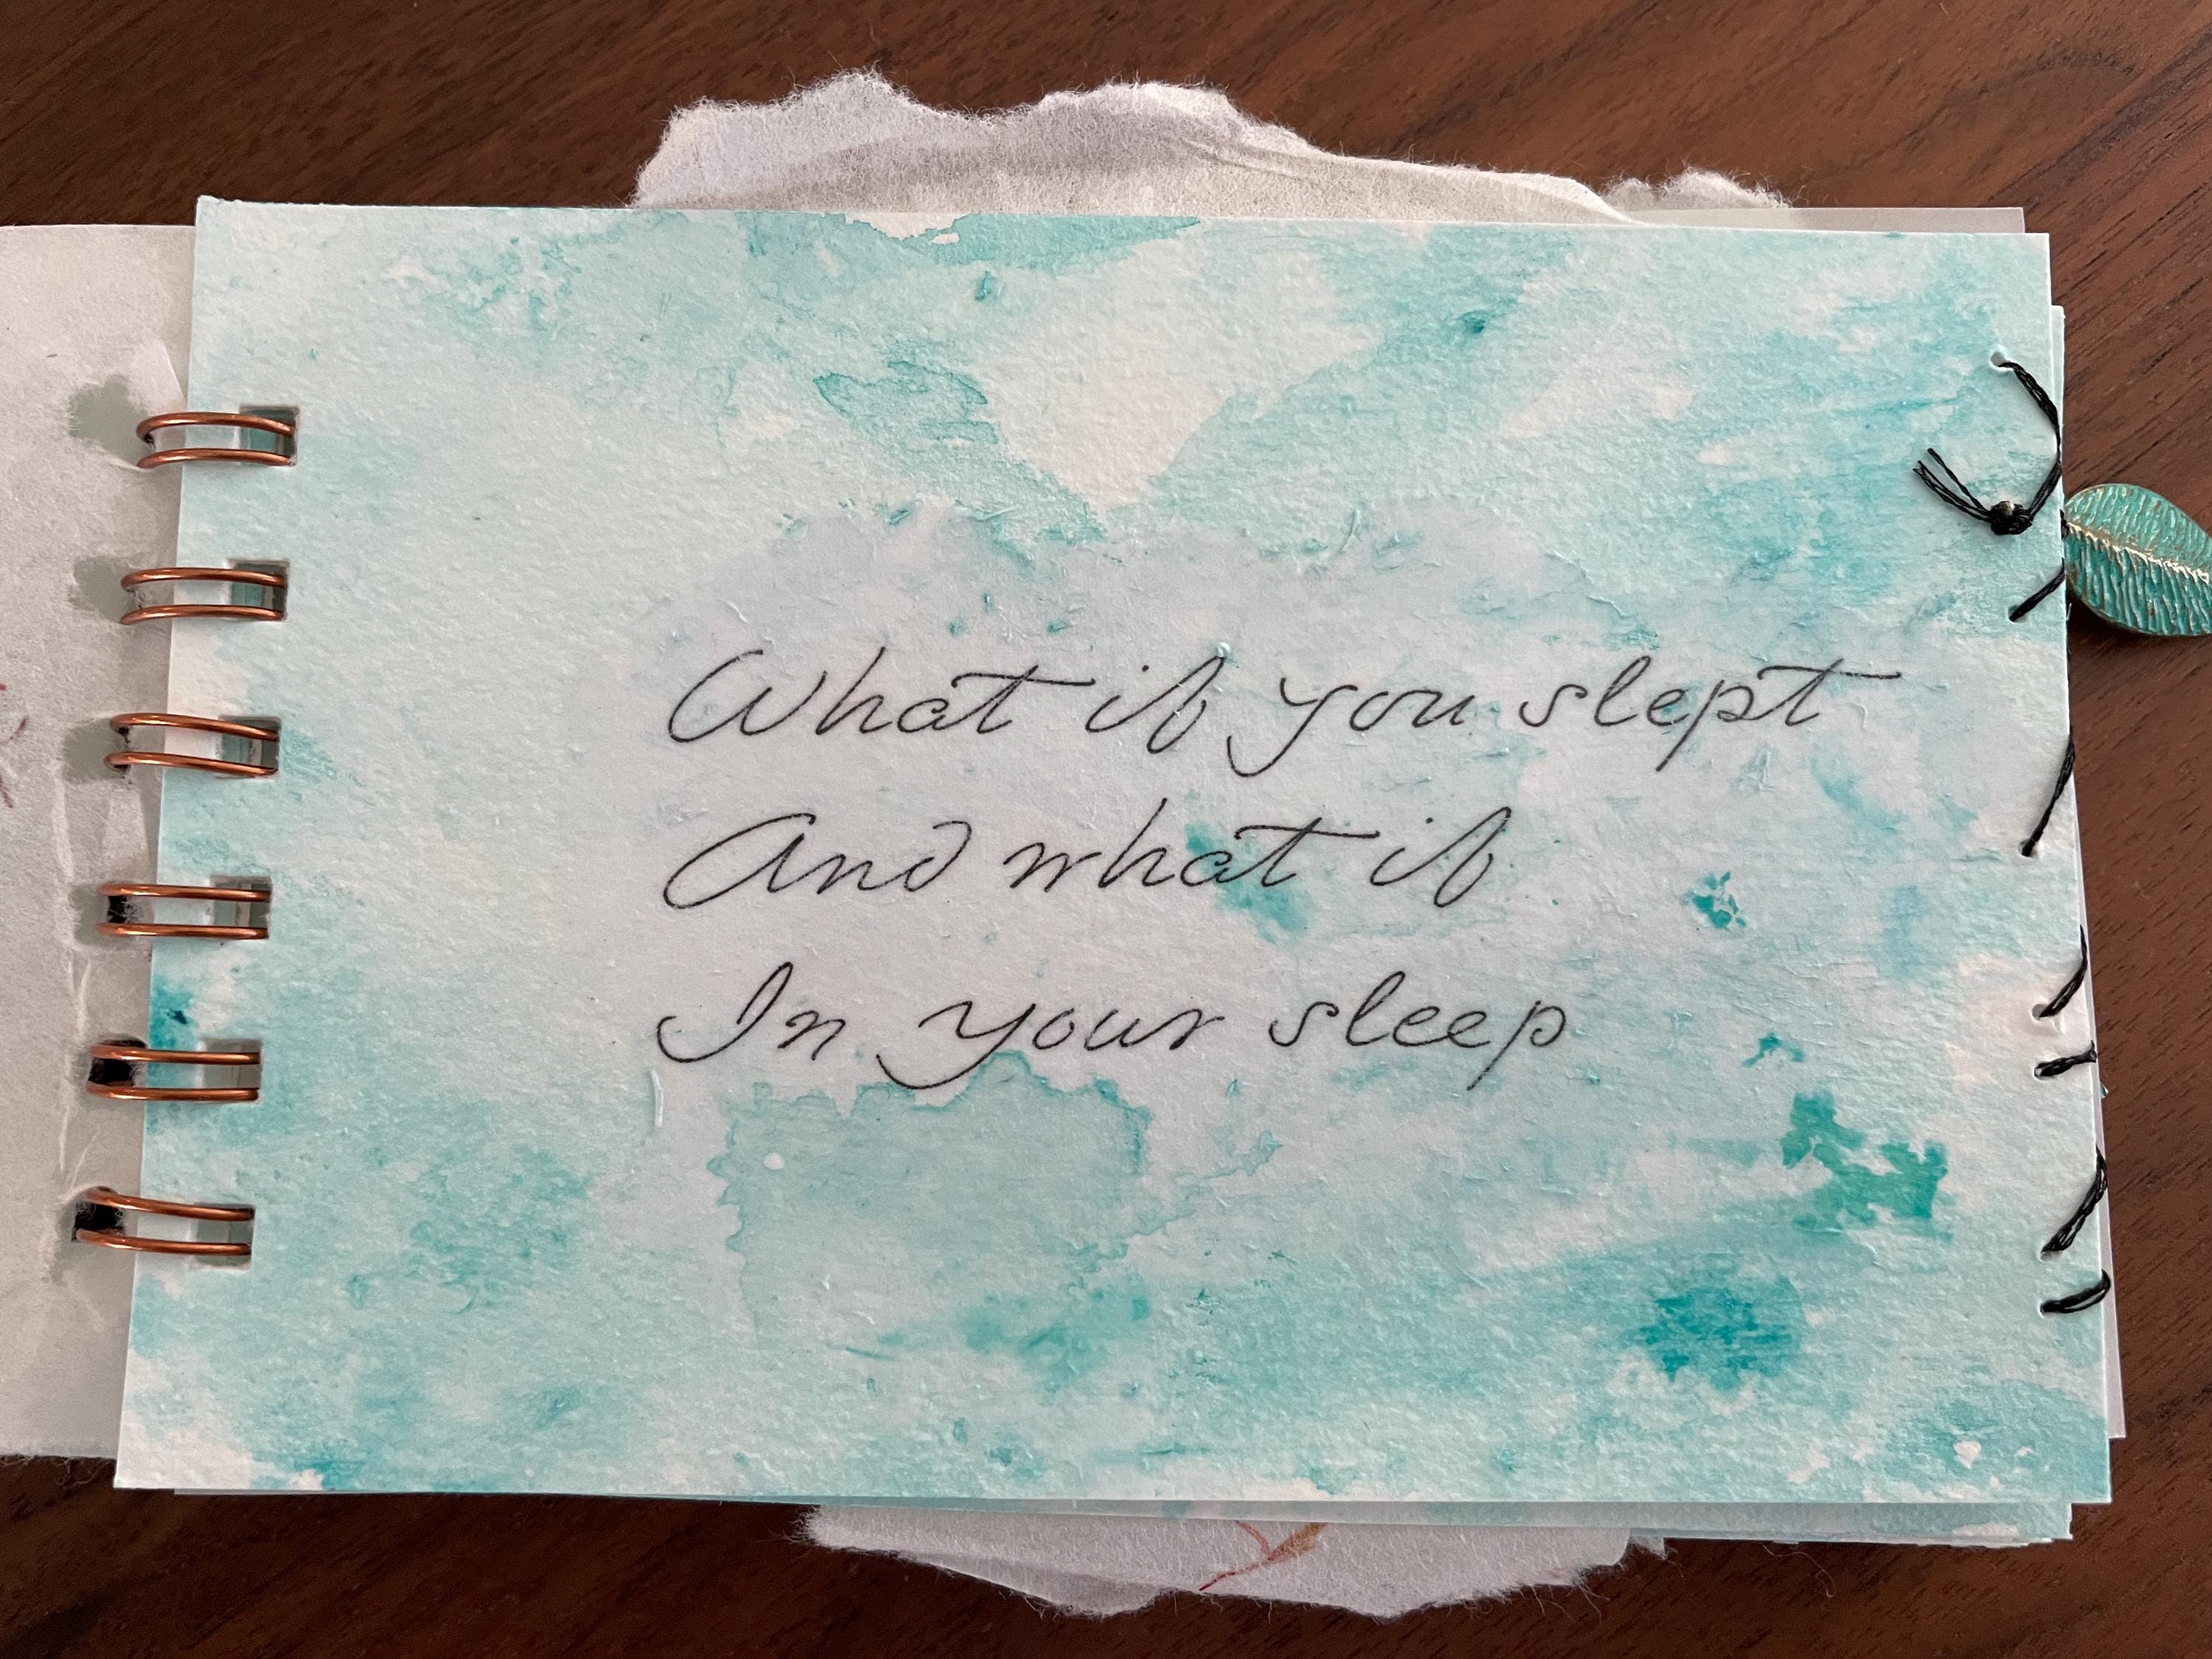 What if you slept
And what if
In your sleep